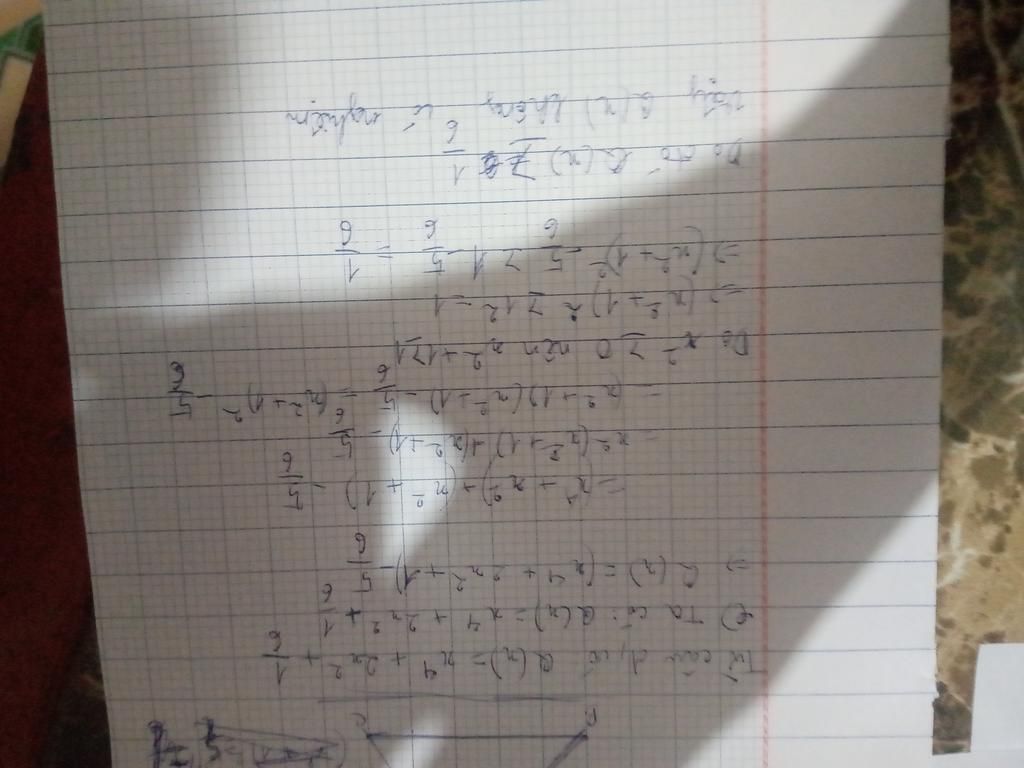 Từ câu d, có Q(x) = x⁴ + 2x² + 1/6
e) Ta có: Q(x) = x⁴ + 2x² + 1/6
⇒ Q(x) = (x⁴ + 2x² + 1) - 5/6
= (x⁴ + x²) + (x² + 1) - 5/6
= x²(x² + 1) + (x² + 1) - 5/6
= (x² + 1)(x² + 1) - 5/6 = (x² + 1)² - 5/6
Do x² ≥ 0 nên x² + 1 ≥ 1
⇒ (x² + 1)² ≥ 1² = 1
⇒ (x² + 1)² - 5/6 ≥ 1 - 5/6 = 1/6
Do đó Q(x) ≥ 1/6
Vậy Q(x) không có nghiệm